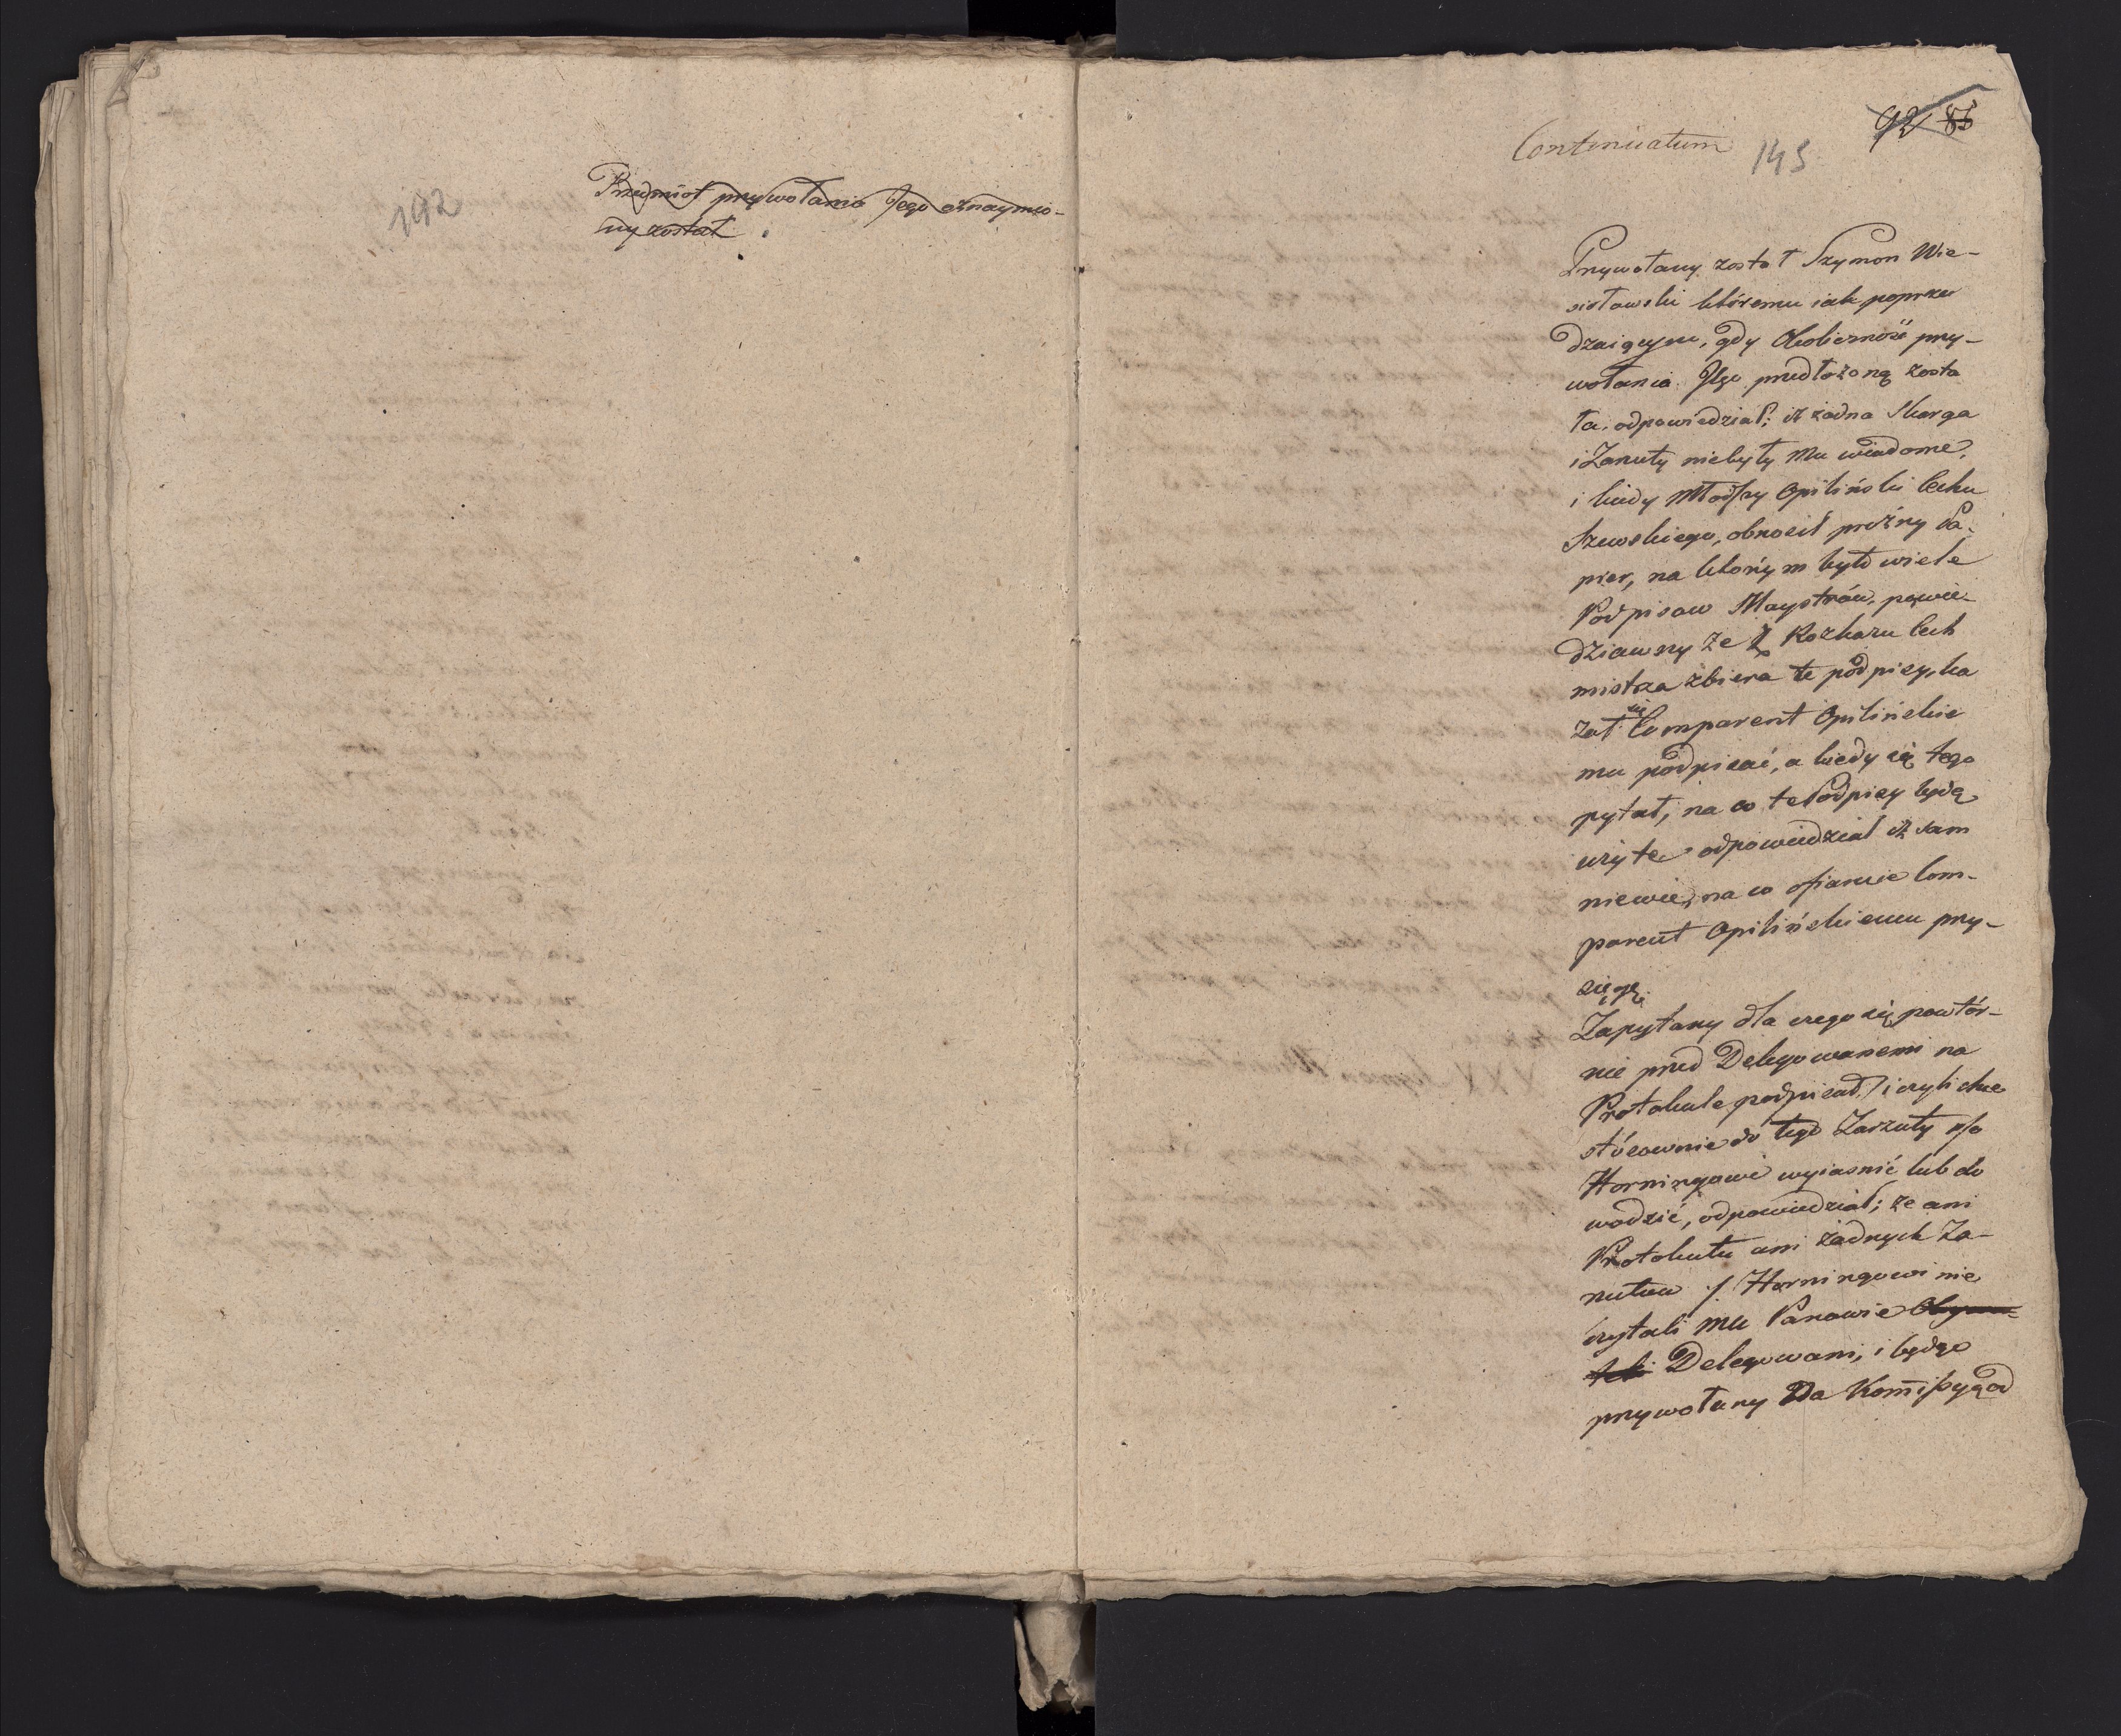 192
Przedmiot przywołania Jego oznaymio-
ny został.
Continuatum
145
92 85
Przywołany został Szymon Wie-
siołowski któremu iak poprze
dzaiącym, gdy Okoliczność przy-
wołania Jego przedłożoną zosta
ła, odpowiedział; iż żadna Skarga
i Zarzuty niebyły Mu wiadome,
i kiedy Młodszy Opiliński Cechu
Szewskiego, obnosił prożny Pa-
pier, na którym było wiele
Podpisow Maystrów, powie-
dziawszy że z Rozkazu Cech
mistrza zbiera te podpisy, ka
zał się Comparent Opilińskie
mu podpisać, a kiedy się tego
pytał, na co te Podpisy będą
użyte odpowiedział iż sam
niewie, na co ofiaruie Com-
parent Opilińskiemu przy-
sięgę.
Zapytany dla czego się powtór-
nie przed Delegowanemi na
Protokule podpisał, i czyli chce
stósownie do tego Zarzuty p/o
Horningowi wyiasnić lub do
wodzić, odpowiedział; że ani
Protokułu ani żadnych Za-
rzutow /. Horningowi nie
czytali mu Panowie
Delegowani, i będąc
przywołany Da Kom̃issyą od